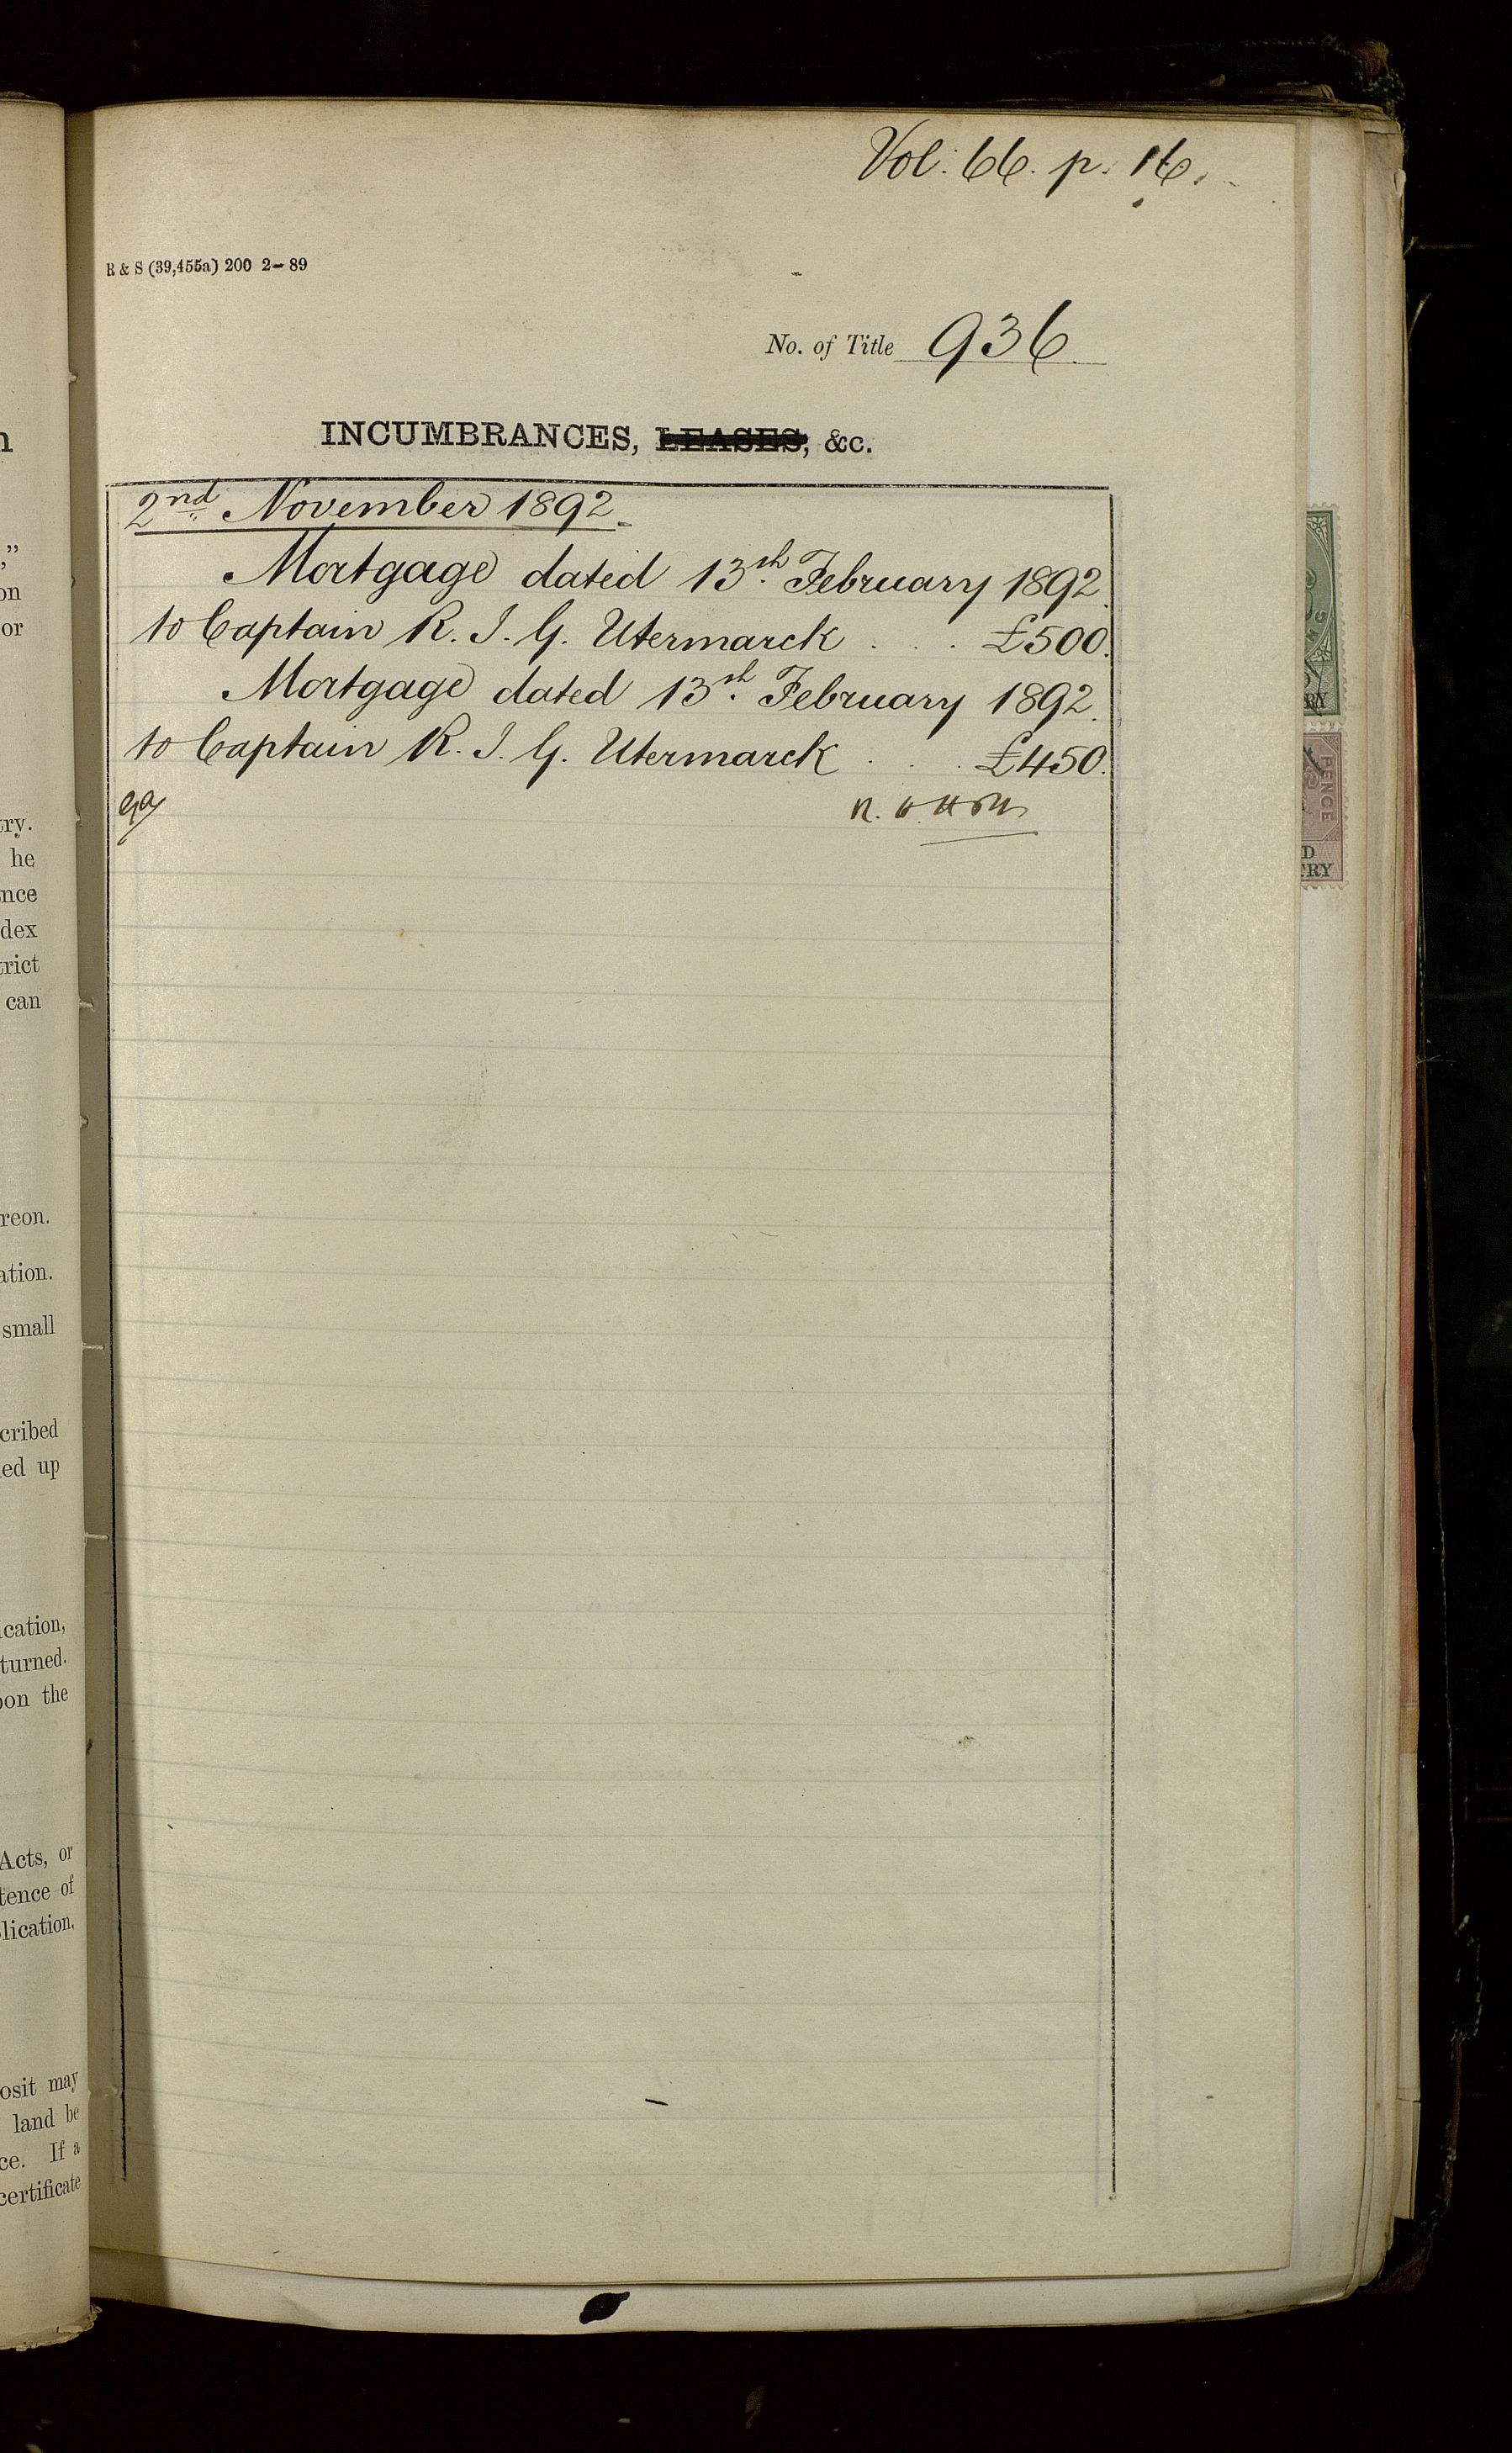 Vol: 66. p. 16.
R & S (39,455a) 200 2-89
No. of Title 936
INCUMBRANCES, LEASES, &c.
2nd November 1892.
Mortgage dated 13th February 1892.
to Captain R. I. G. Utermarck . . . £500.
Mortgage dated 13th February 1892.
to Captain R. I. G. Utermarck . . . £450.
n
on
or
try.
he
nce
dex
trict
can
reon.
ation.
small
cribed
ed up
cation,
turned.
on the
Acts, or
tence of
lication,
osit may
land be
ce. If a
certificate
PENCE